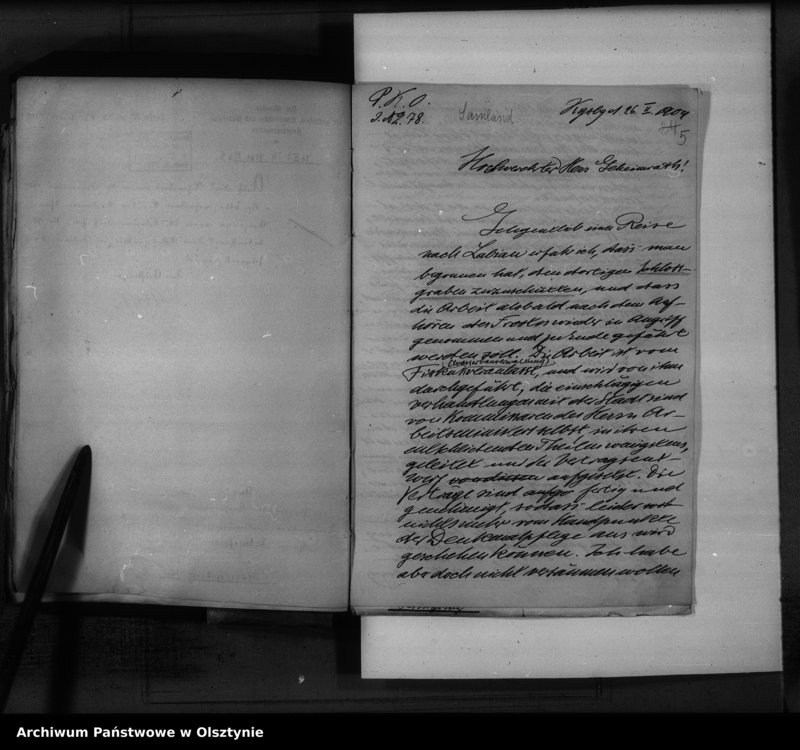 P. K. O.
J. No. 78.
Samland
Kgsbg d 26. II. 1904
5
Hochverehrter Herr Geheimrath!
Gelegentlich einer Reise
nach Labiau erfuhr ich, dass man
begonnen hat, den dortigen Schloss-
graben zuzuschütten, und dass
die Arbeit alsbald nach dem Auf-
hören des Frostes wieder in Angriff
genommen und zu Ende geführt
werden soll. Die Arbeit ist vom
Fiskus (Wasserbauverwaltung) veranlasst, und wird von ihm
durchgeführt, die einschlägigen
Verhandlungen mit der Stadt sind
von Kommissaren des Herrn Ar-
beitsministers selbst in ihren
entscheidenden Theilen wenigstens,
geleitet und der Vertragsent-
wurf aufgesetzt. Die
Verträge sind fertig und
genehmigt, sodass leider wohl
nichts mehr vom Standpunkte
der Denkmalpflege aus wird
geschehen können. Ich habe
aber doch nicht versäumen wollen
Archiwum Państwowe w Olsztynie